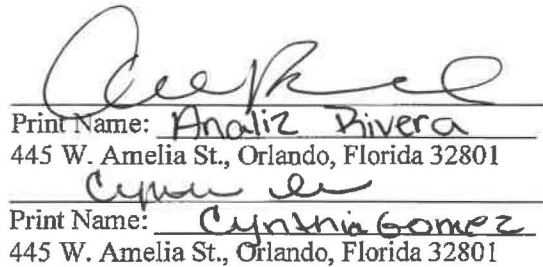 Print Name: Analiz Rivera
445 W. Amelia St., Orlando, Florida 32801
Print Name: Cynthia Gomez
445 W. Amelia St., Orlando, Florida 32801